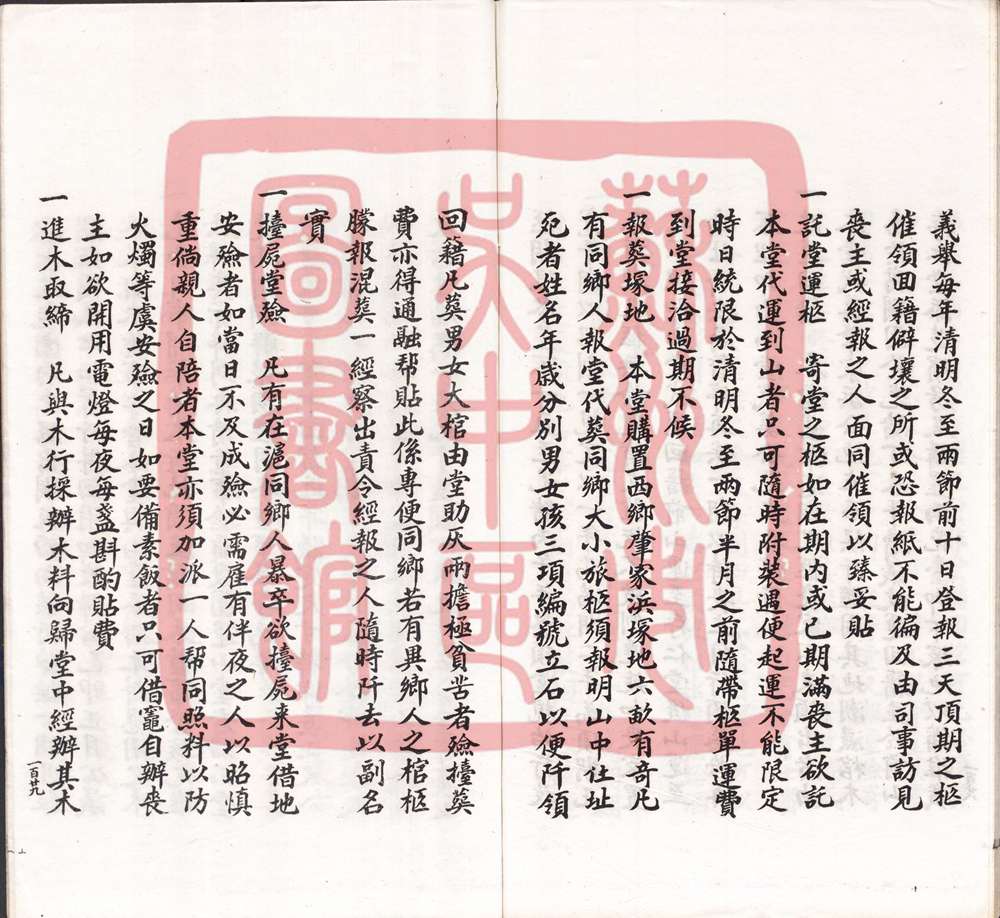 義舉每年清明冬至兩節前十日登報三天頂期之柩
催領面籍僻壤之所或恐報紙不能徧及由司事訪見
喪主或經報之人面同催領以臻妥貼
一託堂運柩 寄堂之柩如在期內或已期滿喪主欲託
本堂代運到山者只可隨時附裝遇便起運不能限定
時日統限於清明冬至兩節半月之前隨帶柩單運費
到堂接洽過期不候
一報葬塚地 本堂購置西鄉肇家浜塚地六畝有奇凡
有同鄉人報堂代葬同鄉大小旅柩須報明山中住址
死者姓名年歲分別男女孩三項編號立石以便阡領
回籍凡葬男女大棺由堂助灰兩擔極貧苦者殮擡葬
費亦得通融帮貼此係專便同鄉若有異鄉人之棺柩
朦報混葬一經察出責令經報之人隨時阡去以副名
實
一擡屍堂殮 凡有在滬同鄉人暴卒欲擡屍来堂借地
安殮者如當日不及成殮必需雇有伴夜之人以昭慎
重倘親人自陪者本堂亦須加派一人帮同照料以防
火燭等虞安殮之日如要備素飯者只可借竈自辦喪
主如欲開用電燈每夜每盞斟酌貼費
一進木取締 凡與木行採辦木料向歸堂中經辦其木
一百廿九
蘇州市
吳中區
圖書館